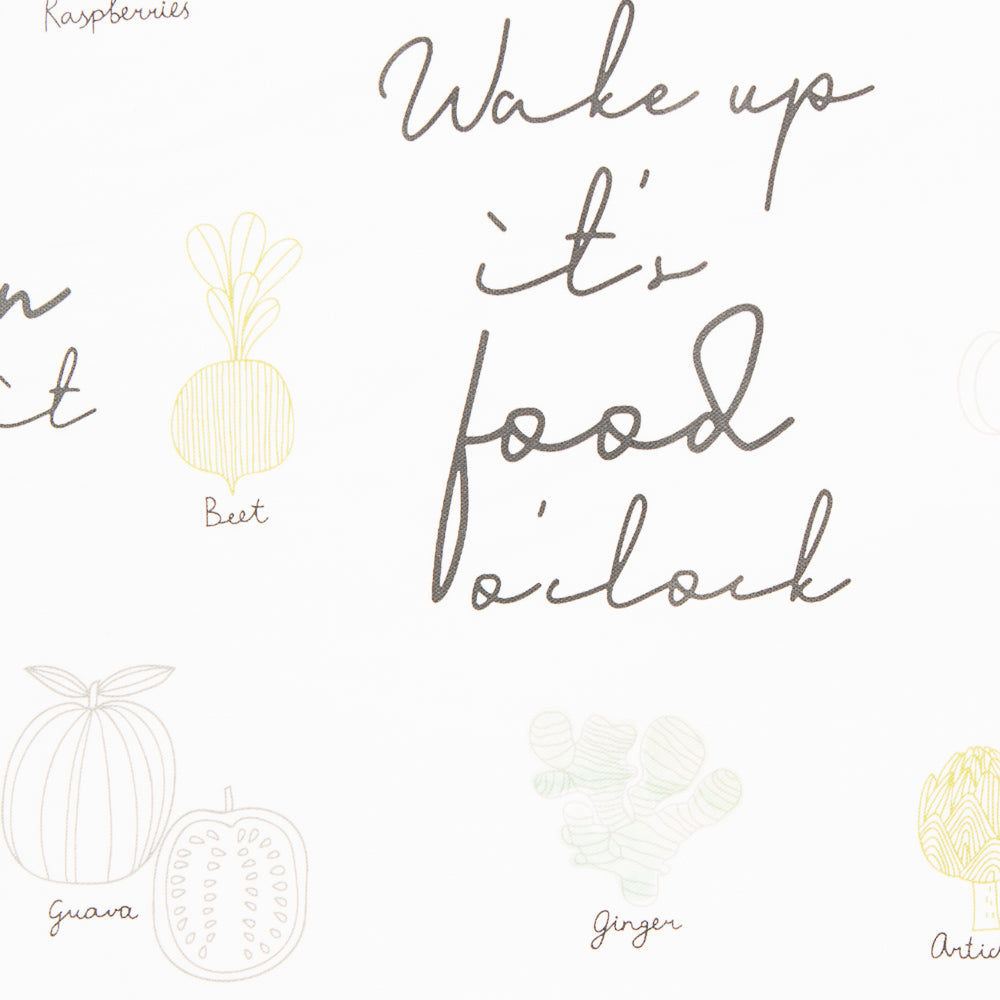 Raspberries
Wake up
it's
food
o'clock
it
Beet
Guava
Ginger